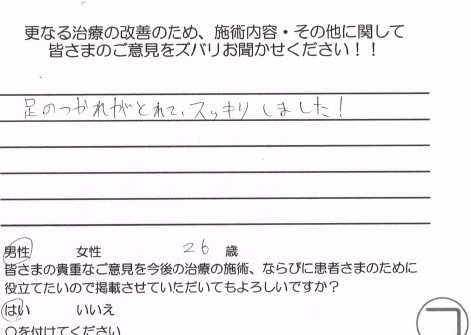 更なる治療の改善のため、施術内容・その他に関して
皆さまのご意見をズバリお聞かせください！！
足のつかれがとれて、スッキリしました！
男性 女性 26 歳
皆さまの貴重なご意見を今後の治療の施術、ならびに患者さまのために
役立てたいので掲載させていただいてもよろしいですか？
はい いいえ
○を付けてください